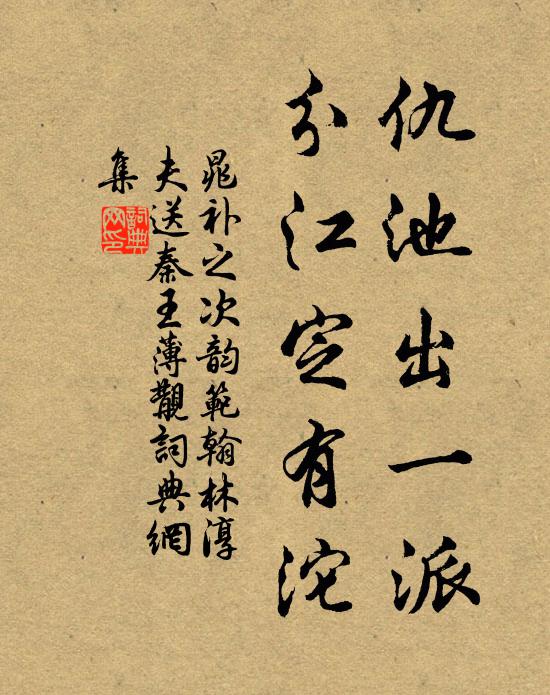 仇池出一派
分江定有沱
晁补之次韵範翰林淳
夫送秦王薄觏詞典網
集
詞典网印